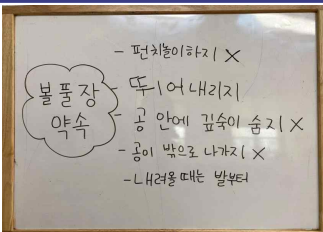 볼풀장
약속
- 펀치놀이하지 X
- 뚜|어내리지
- 공 안에 깊숙이 숨지 X
- 공이 밖으로 나가지 X
- 내려올 때는 발부터